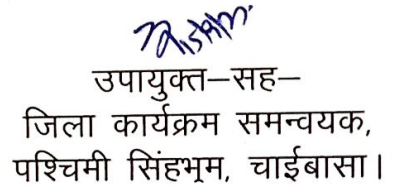 उपायुक्त–सह–
जिला कार्यक्रम समन्वयक,
पश्चिमी सिंहभूम, चाईबासा।